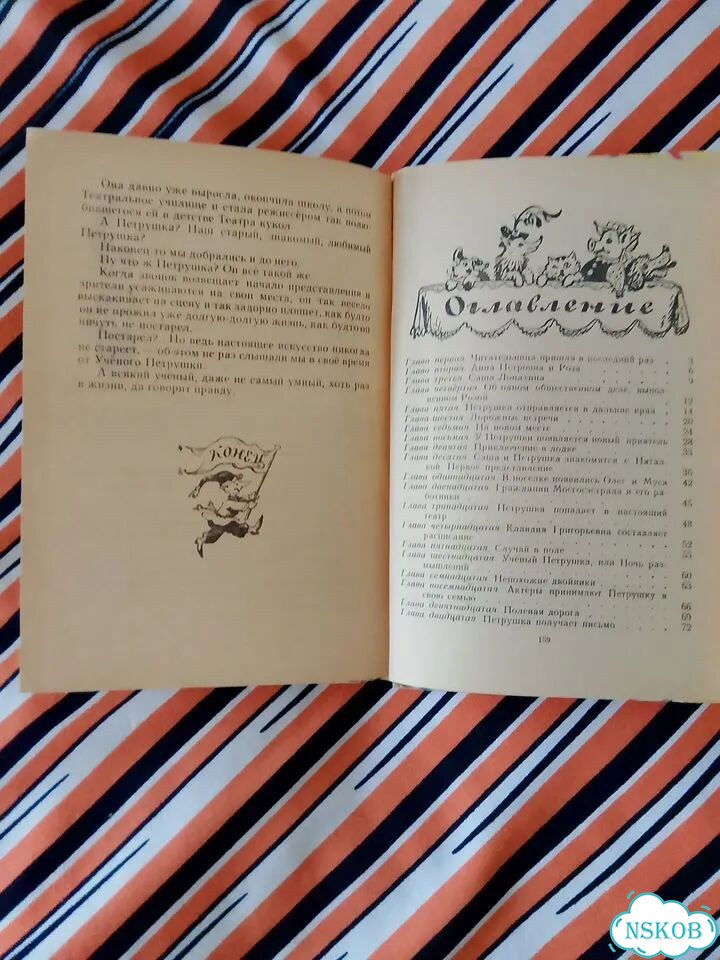 Она давно уже выросла, окончила школу, а потом
Театральное училище и стала режиссёром так полю-
бившегося ей в детстве Театра кукол
А Петрушка? Наш старый, знакомый, любимый
Петрушка?
Наконец-то мы добрались и до него.
Ну что ж Петрушка? Он всё такой же
Когда звонок возвещает начало представления и
зрители усаживаются на свои места, он так весело
выскакивает на сцену и так задорно пляшет, как будто
он не прожил уже долгую-долгую жизнь, как будто он
ничуть не постарел.
Постарел?.. Но ведь настоящее искусство никогда
не стареет, — об этом не раз слышали мы в своё время
от Учёного Петрушки.
А всякий учёный, даже не самый умный, хоть раз
в жизни, да говорит правду.
КОНЕЦ
Оглавление
Глава первая. Читательница пришла в последний раз 3
Глава вторая. Анна Петровна и Роза 6
Глава третья. Саша Лопахина 9
Глава четвёртая. Об одном общественном деле, выпол-
ненном Розой 12
Глава пятая. Петрушка отправляется в дальние края 14
Глава шестая. Дорожные встречи 20
Глава седьмая. На новом месте 24
Глава восьмая. У Петрушки появляется новый приятель 28
Глава девятая. Приключение в лодке 33
Глава десятая. Саша и Петрушка знакомятся с Натал-
кой. Первое представление 36
Глава одиннадцатая. В посёлке появились Олег и Муся 42
Глава двенадцатая. Гражданин Мостосеграла и его ра-
ботники 45
Глава тринадцатая. Петрушка попадает в настоящий
театр 48
Глава четырнадцатая. Клавдия Григорьевна составляет
расписание 52
Глава пятнадцатая. Случай в поле 55
Глава шестнадцатая. Учёный Петрушка, или Ночь раз-
мышлений 60
Глава семнадцатая. Непохожие двойники 63
Глава восемнадцатая. Актёры принимают Петрушку в
свою семью 66
Глава девятнадцатая. Полевая дорога 69
Глава двадцатая. Петрушка получает письмо 72
159
NSKOB